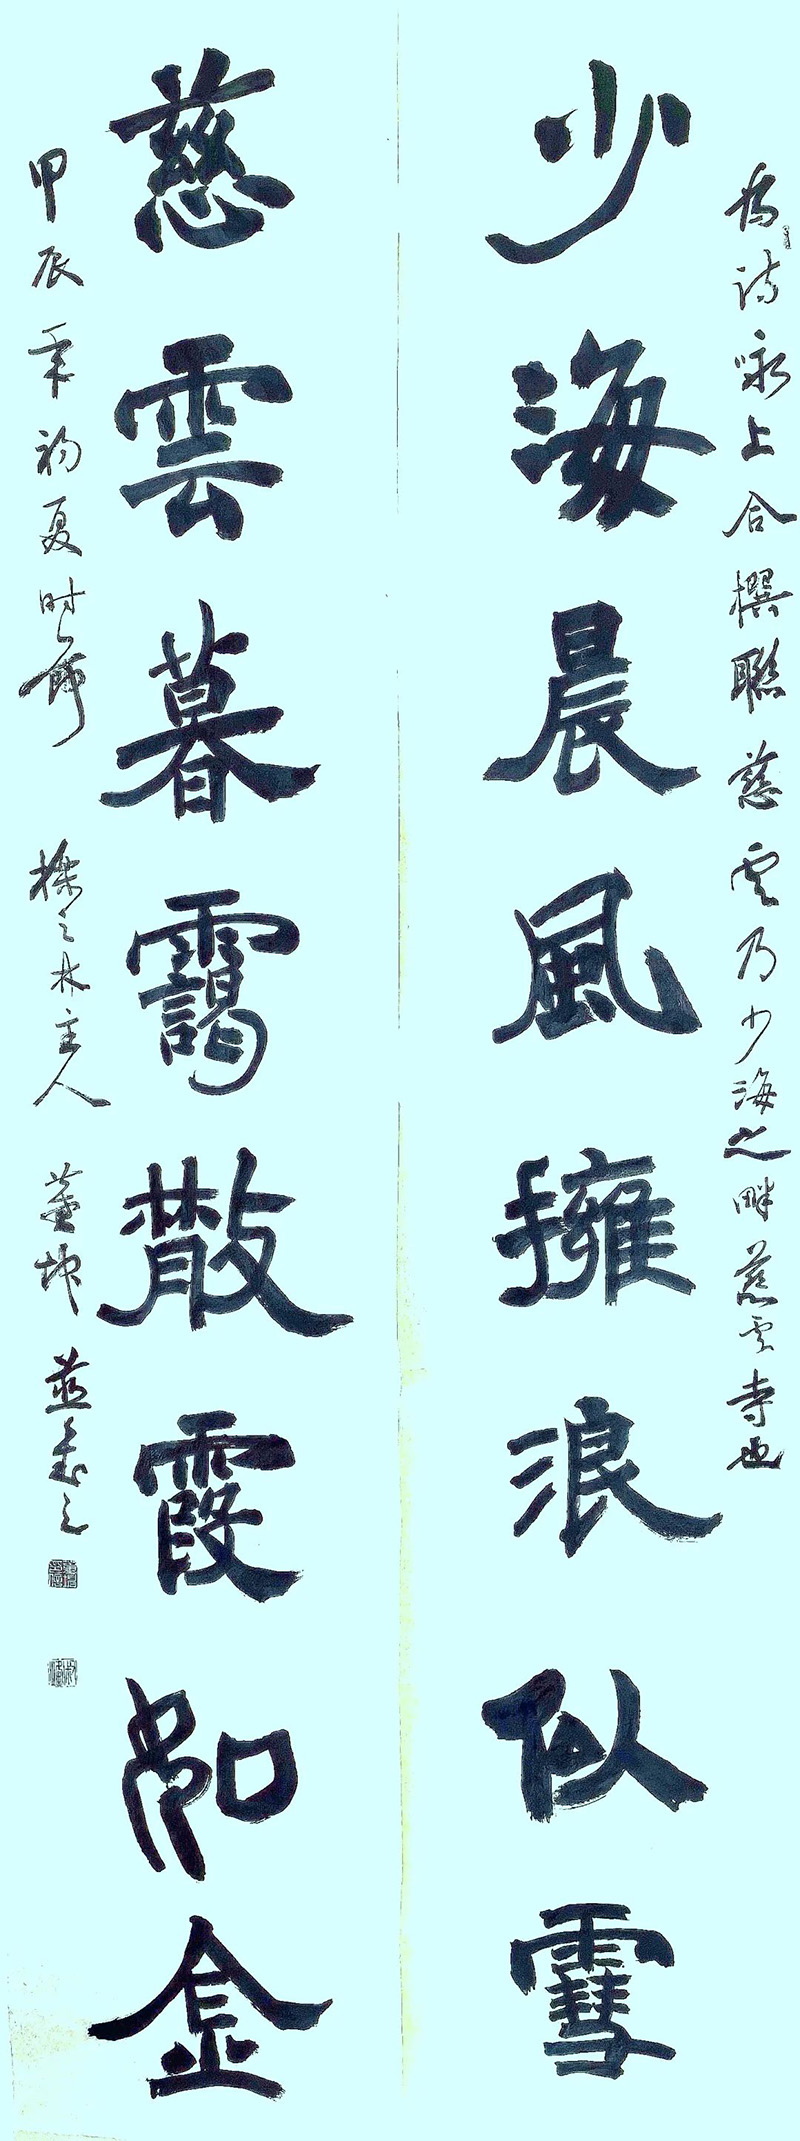 為詩咏上合撰聯慈雲乃少海之畔慈雲寺也
少海晨風擁浪似雪
慈雲暮靄散霞如金
甲辰年初夏时節 櫟之林主人